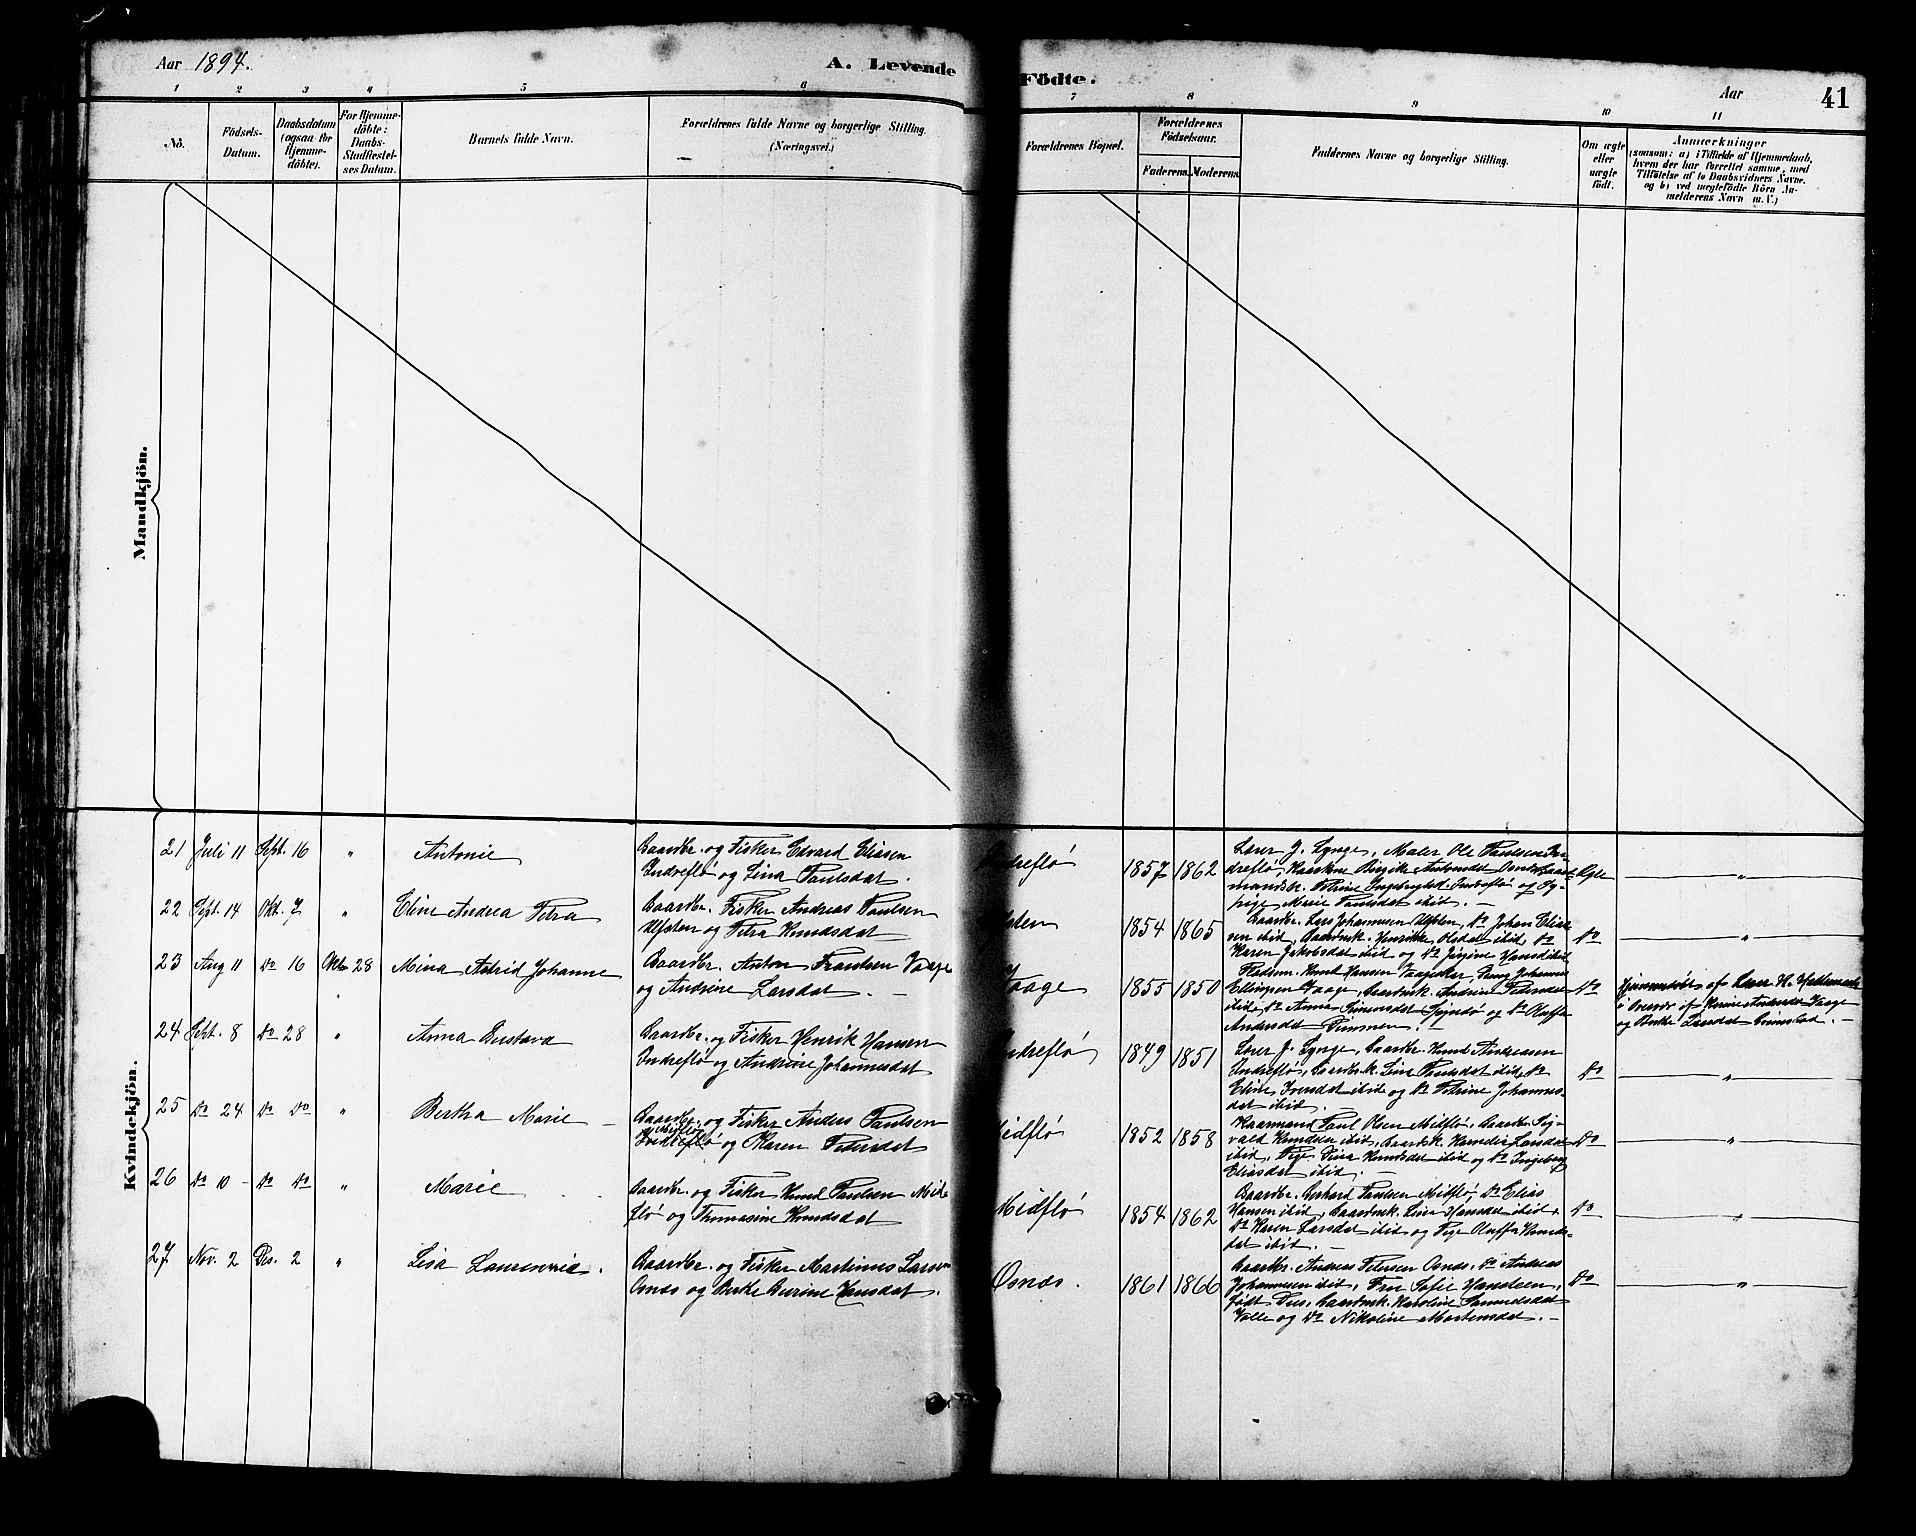 Aar 1894.
A. Levende Födte.
Aar
41
1 2 3 4 5 6 7 8 9 10 11
No.
Födsels-Datum.
Daabsdatum (ogsaa for Hjemmedöbte).
For Hjemmedöbte: Daabs-Stadfæstelses Datum.
Barnets fulde Navn.
Forældrenes fulde Navne og borgerlige Stilling. (Næringsvei.)
Forældrenes Bopæl.
Forældrenes Födselsaar.
Faderens. Moderens.
Faddernes Navne og borgerlige Stilling.
Om ægte eller uægte födt.
Anmærkninger
(saasom: a) i Tilfælde af Hjemmedaab,
hvem der har forrettet samme, med
Tilföielse af to Daabsvidners Navne.
og b) ved uægtefödte Börn An-
melderens Navn m. V.)
Mandkjön.
Kvindekjön.
21 Juli 11 Sept. 16 " Antonie
Gaardbr. og Fisker Edvard Eliasen
Indreflö og Lina Paulsdat.
Indreflö 1857 1862
Lærer J. Lynge, Maler Ole Paulsen In-
dreflö,
mandsk. Petrine Ingebrigtsd. Indreflö og
pige Marie Paulsdat ibid. —
Ægte "
22 Sept. 14 Okt. 7 " Eline Andrea Petra
Gaardbr. Fisker Andreas Paulsen
Ulfsten og Petra Knudsdat
1854 1865
Gaardbr. Lars Johannesen Ulfsten, Do Johan Elia-
sen ibid, Gaardmsk. Henrikke Olsdat ibid, Do
Karen Jakobsdat ibid og Do Jörgine Hansd ibid
Do "
23 Aug 11 Do 16 Okt. 28 Mina Astrid Johanne
Gaardbr. Anton Frantsen Vaage
og Andrine Larsdat. —
Vaage 1855 1850
Pladsm. Knud Hansen Vaage, Johannes
Ellingsen Vaage, Gaardmsk. Andrine Pedersdat
ibid, Do Anna Simonsdat og Do Oluffa
Andersdat
Do
Hjemmedöbt af Lærer H.
i Overvær af Andersdat Vaage
og Berthe Larsdat Grimstad. —
24 Sept. 8 Do 28 " Anna Gustava
Gaardbr. og Fisker Henrik Hansen
Indreflö og Andrine Johannesdat
Indreflö 1849 1851
Lærer J. Lynge, Gaardbr. Knud Andreasen
Indreflö, Gaardmsk. Lina Paulsdat ibid, Do
Eline Iversdat ibid og Do Petrine Johannes-
dat ibid.
Do "
25 Do 24 Do Do " Bertha Marie
Gaardbr. og Fisker Anders Paulsen
Midflö
Indreflö og Karen Petersdat
Midflö 1852 1858
Kaarmand Paul Olsen Midflö, Gaardbr. Sig-
vald Knudsen ibid, Gaardmsk. Larsdat
ibid, Pige Lina Knudsdat ibid og Do Ingeborg
Eliasdat ibid. —
Do "
26 Do 10 Do Do " Marie
Gaardbr. og Fisker Knud Paulsen Mid-
flö og Thomasine Knudsdat
Midflö 1854 1862
Gaardbr. Gerhard Paulsen Midflö, Do Elias
Hansen ibid, Gaardmsk. Lina Hansdat ibid,
Do Karen Larsdat ibid og Pige Oluffa Knuds-
dat ibid. —
Do "
27 Nov. 2 Des. 2 " Lisa Laurenzia.
Gaardbr. og Fisker Martinus Larsen
Osnæs og Berthe Hansdat.
Osnæs. 1861 1866
Gaardbr. Andreas Petersen Osnæs, Do Andreas
Johannesen ibid, Fru Sofie
född Gaardmsk. Karoline Samuelsdat
Valle og Do Nikoline Mortensdat. —
Do "